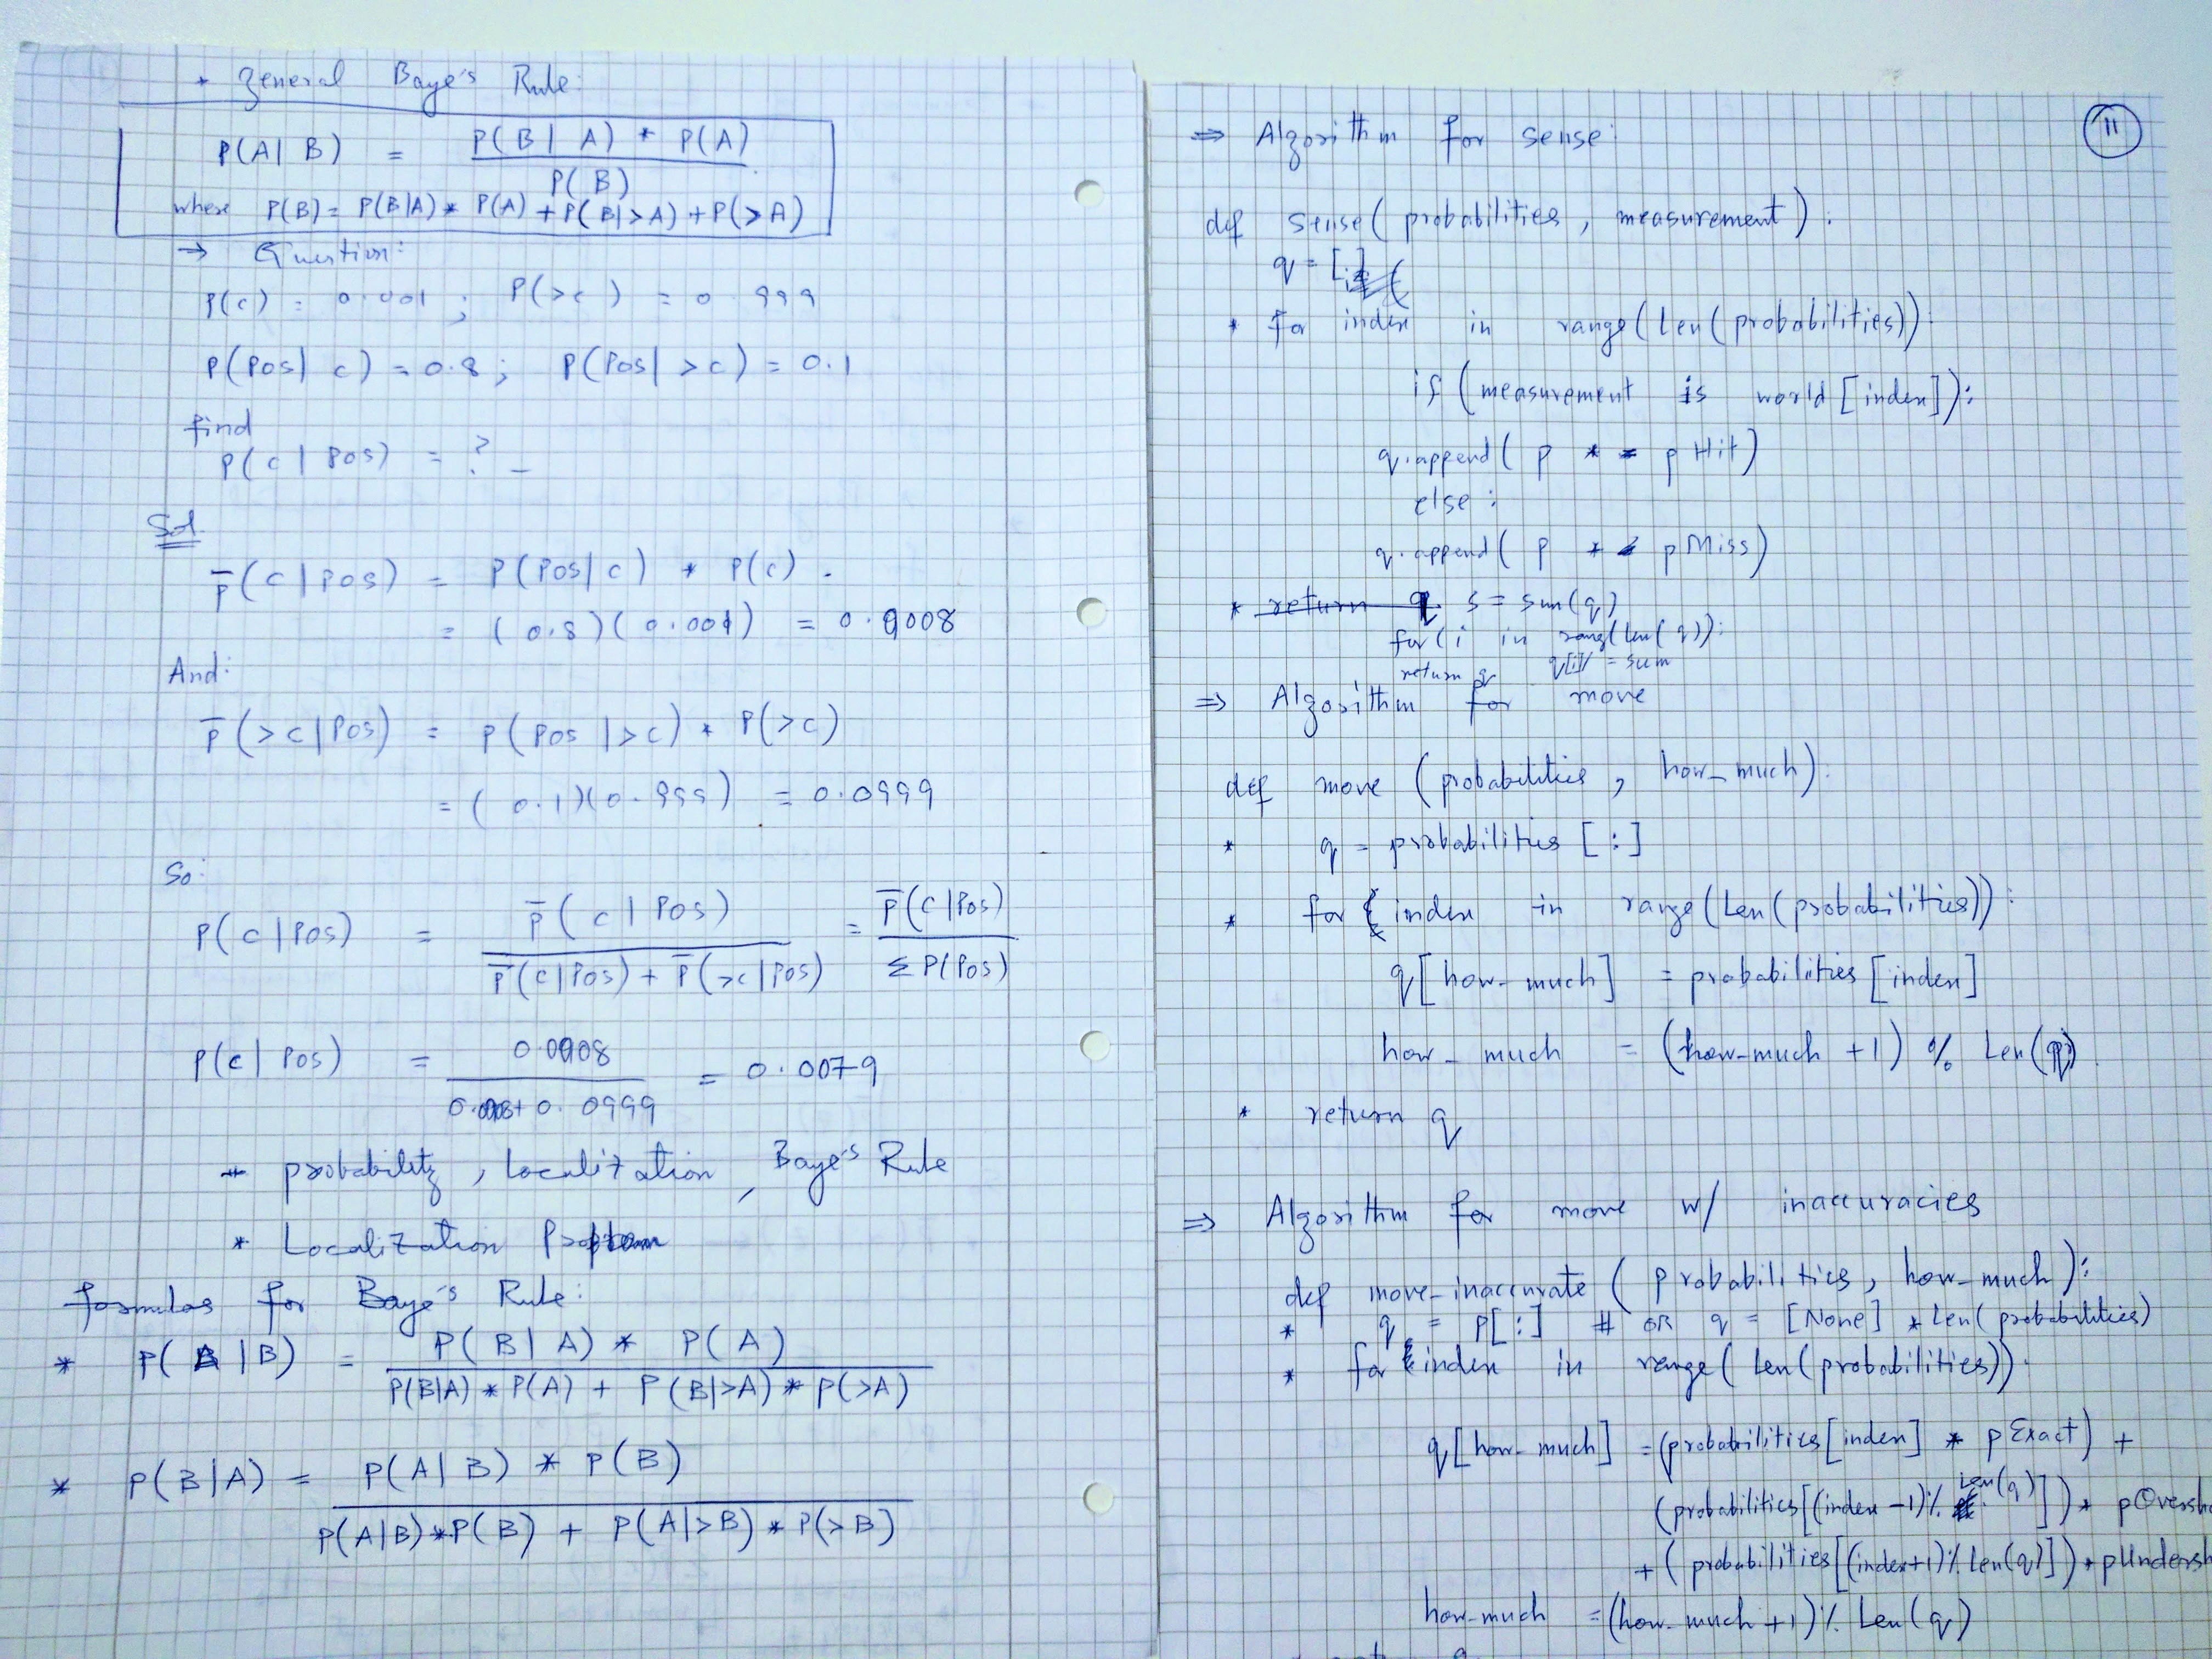 * General Baye's Rule:
P(A| B) = P(B| A) * P(A)
P(B)
where P(B) = P(B|A)* P(A) + P(B|>A) + P(>A)
→ Question:
P(c) = 0.001 ; P(>c) = 0.999
P(Pos| c) = 0.8 ; P(Pos| >c) = 0.1
find
P(c | Pos) = ? _
Sol
P̅(c | Pos) = P(Pos| c) * P(c) .
= (0.8)(0.001) = 0.0008
And:
P̅(>c | Pos) = P(Pos |>c) * P(>c)
= (0.1)(0.999) = 0.0999
So:
P(c | Pos) = P̅(c | Pos) = P̅(c |Pos)
P̅(c|Pos) + P̅(>c|Pos) Σ P(Pos)
P(c | Pos) = 0.0008 = 0.0079
0.0008+0.0999
* probability, Localization, Baye's Rule
* Localization Problem
formulas for Baye's Rule:
* P(A |B) = P(B| A) * P(A)
P(B|A) * P(A) + P(B|>A) * P(>A)
* P(B|A) = P(A| B) * P(B)
P(A|B)*P(B) + P(A|>B) * P(>B)
11
⇒ Algorithm for sense:
def sense(probabilities, measurement):
q = []
* for index in range(len(probabilities)):
if (measurement is world[index]):
q.append( p * pHit)
else :
q.append( p * pMiss)
* return q s = sum(q)
for(i in rang(len(q)):
q[i]/ = sum
return q
⇒ Algorithm for move
def move (probabilities, how_much):
* q = probabilities [:]
* for index in range(len(probabilities)):
q[how_much] = probabilities [index]
how_much = (how_much +1) % len(q)
* return q
⇒ Algorithm for move w/ inaccuracies
def move_inaccurate (probabilities, how_much):
* q = p[:] # OR q = [None] * len(probabilities)
* for index in range(len(probabilities)):
q[how_much] = (probabilities[index] * pExact) +
(probabilities[(index -1)% len(q)]) * pOversh
+ (probabilities[(index+1)% len(q)]) * pUndersh
how_much = (how_much +1)% len(q)